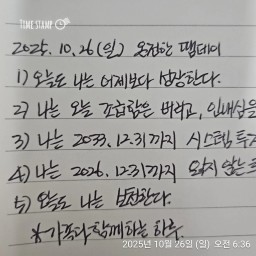 TIME STAMP
2025. 10. 26 (일) 온전한 땜데이
1) 오늘도 나는 어제보다 성장한다.
2) 나는 오늘 조급함은 버리고, 인내심을
3) 나는 2033. 12. 31 까지 시스템 투
4) 나는 2026. 12. 31 까지 않는
5) 오늘도 나는 실천한다.
※ 가족과 함께하는 하루.
2025년 10월 26일 (일) 오전 6:36